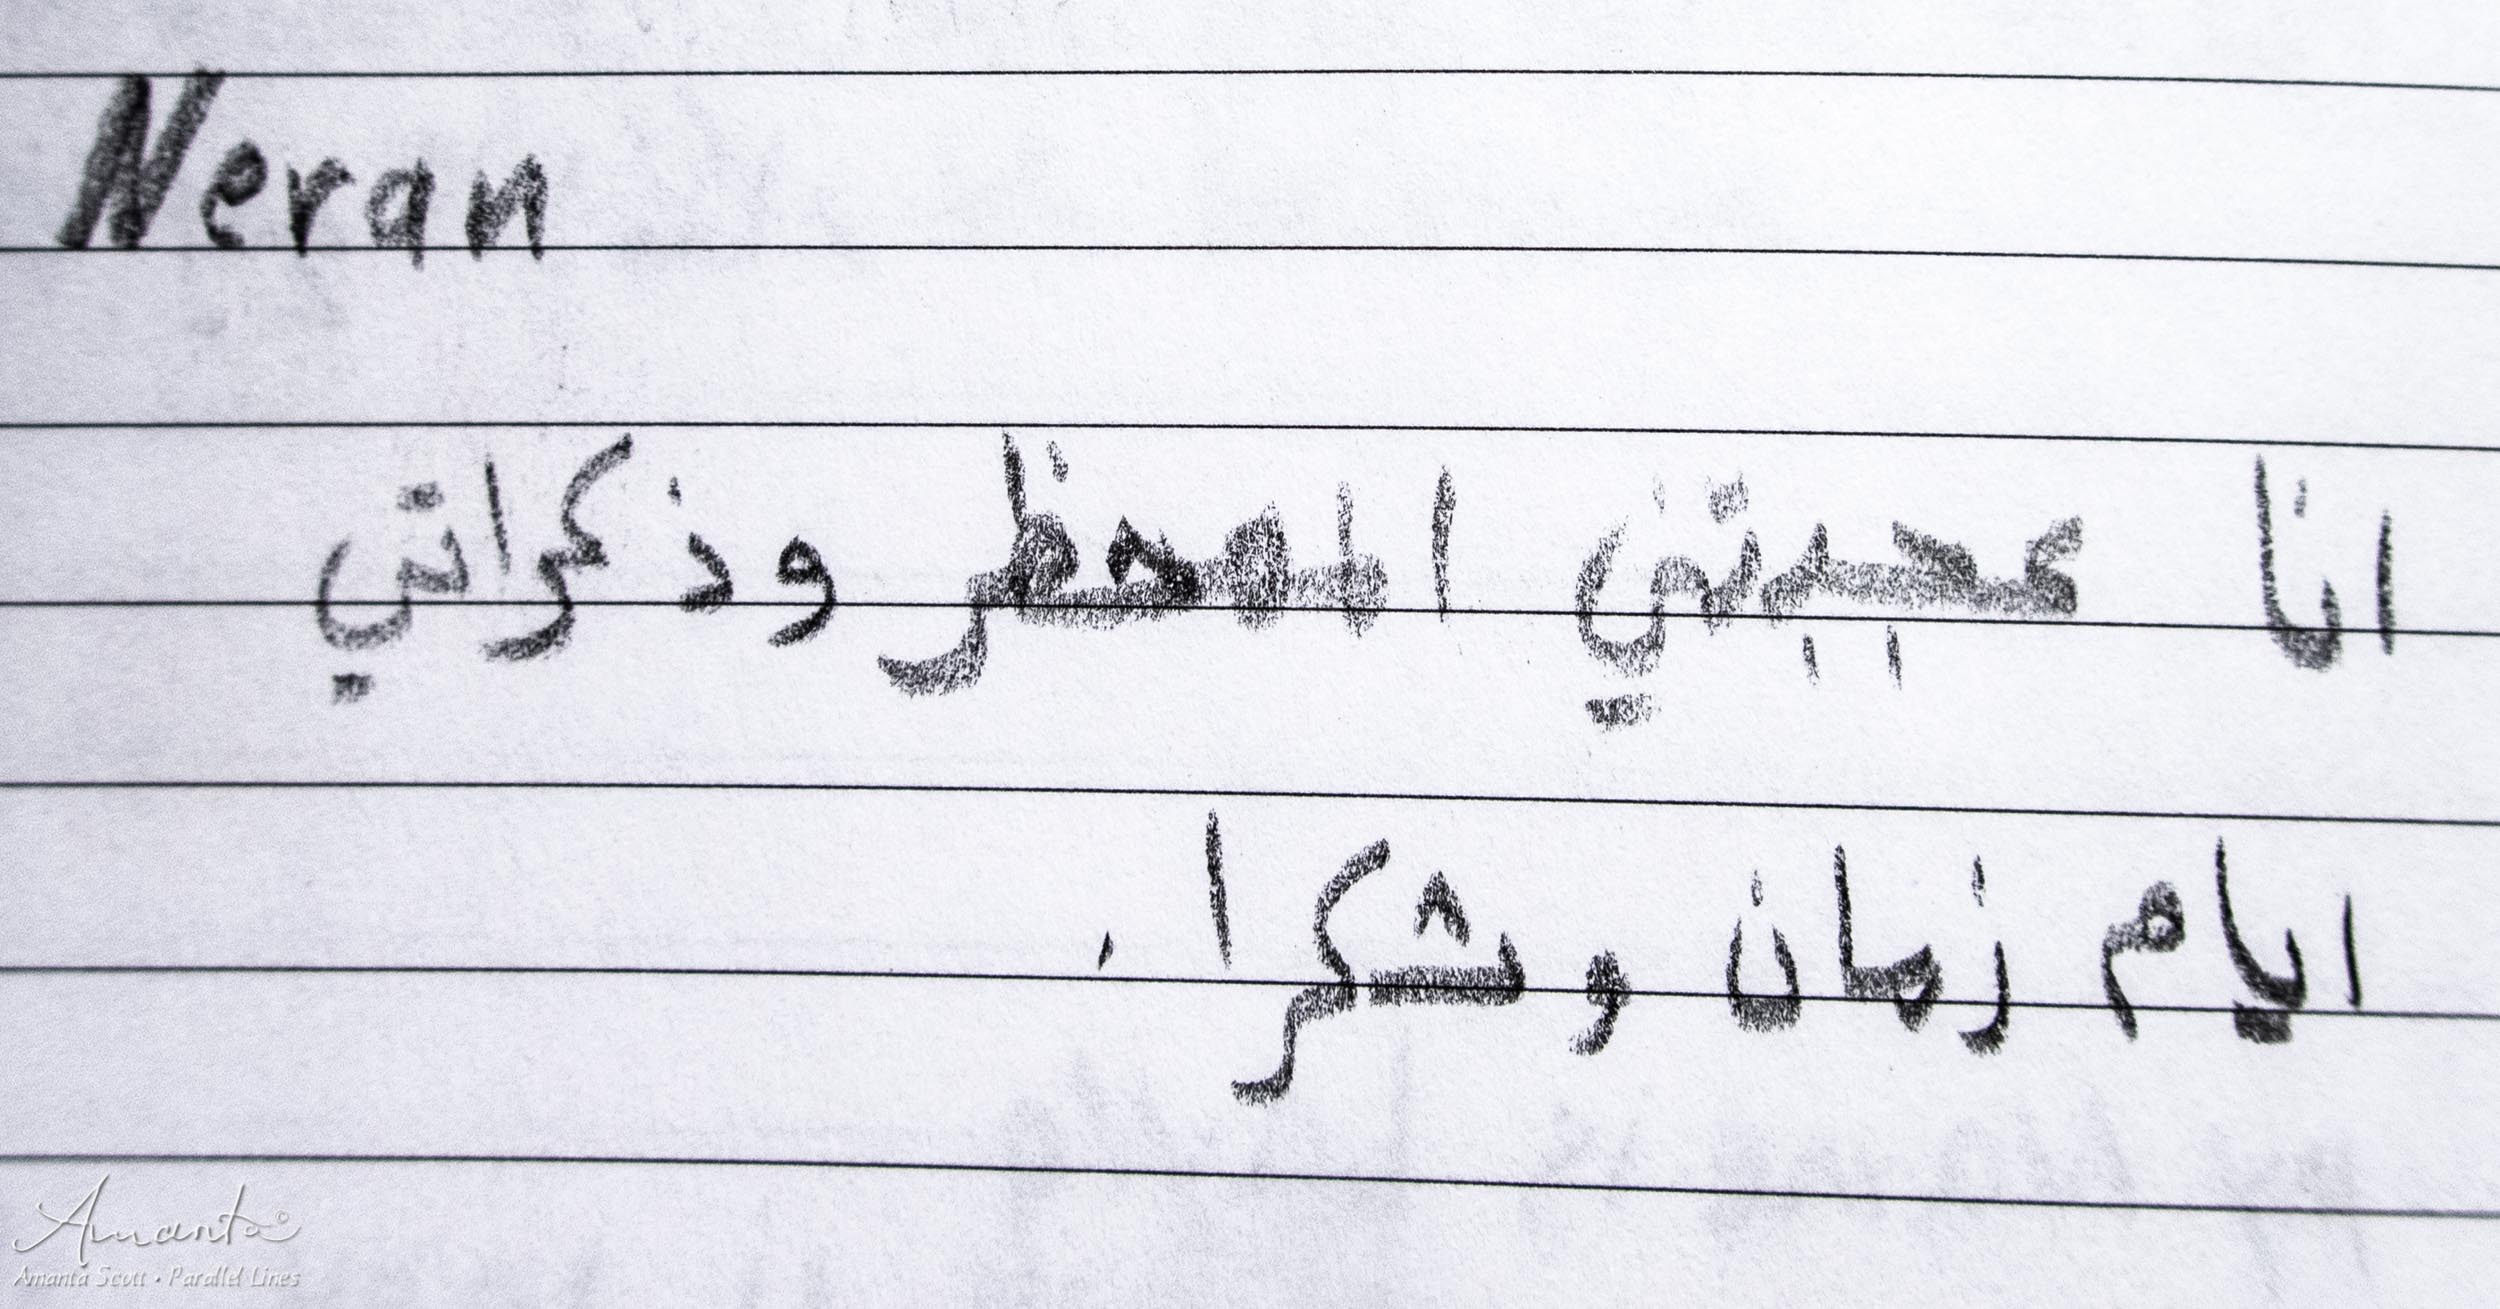 Neran
انا عجبتني المحظر وذكراتي
ايام زمان وشكرا .
Amanta ©
Amanta Scott • Parallel Lines